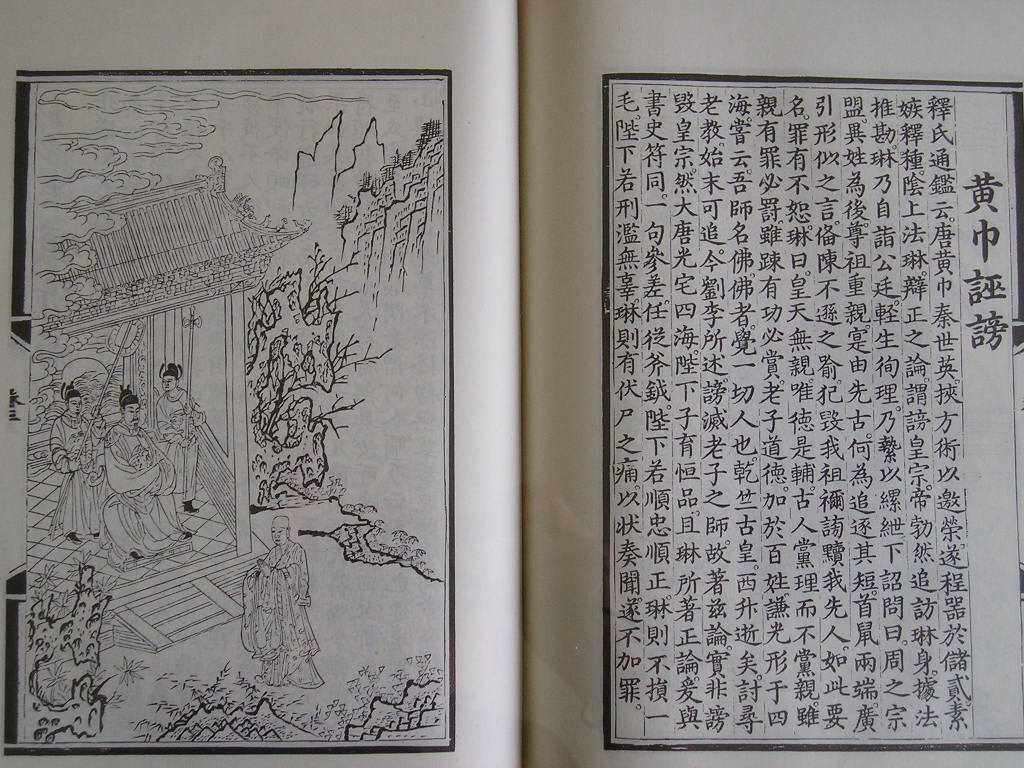 黄巾誣謗
釋氏通鑑云。唐黄巾秦世英。挾方術以邀榮。遂程器於儲貳。素
嫉釋種。陰上法琳。辯正之論。謂謗皇宗。帝勃然追訪琳身。據法
推勘。琳乃自詣公廷。輕生徇理。乃縶以縲紲。下詔問曰。周之宗
盟。異姓為後。尊祖重親。寔由先古。何為追逐其短。首鼠兩端。廣
引形似之言。俻陳不遜之喻。犯毀我祖禰。謗黷我先人。如此要
名。罪有不恕。琳曰。皇天無親。唯德是輔。古人黨理而不黨親。雖
親有罪必罰。雖踈有功必賞。老子道德。加於百姓。謙光形于四
海。嘗云。吾師名佛。佛者。覺一切人也。乾竺古皇。西升逝矣。討尋
老教。始末可追。今劉李所述。謗滅老子之師。故著兹論。實非謗
毀皇宗。然大唐光宅四海。陛下子育恒品。且琳所著正論。爰與
書史符同。一句參差。任從斧鉞。陛下若順忠順正。琳則不損一
毛。陛下若刑濫無辜。琳則有伏尸之痛。以狀奏聞。遂不加罪。